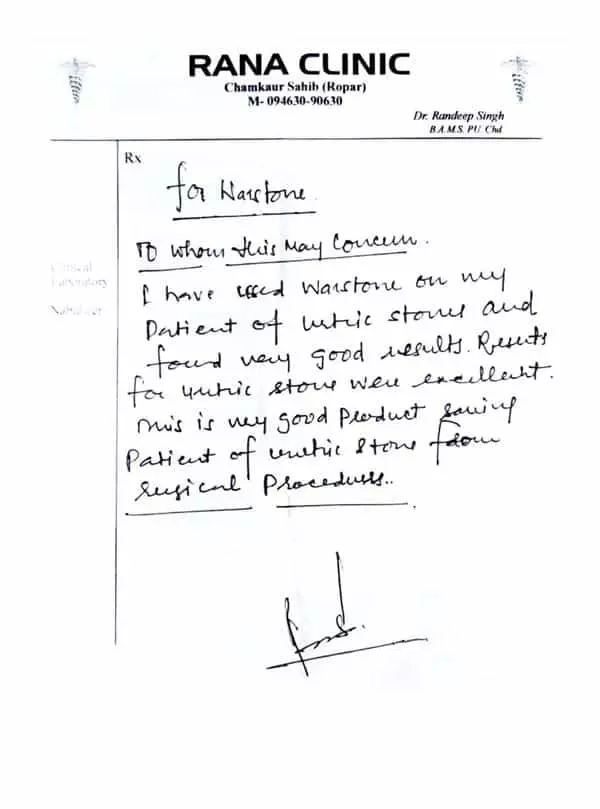 RANA CLINIC
Chamkaur Sahib (Ropar)
M- 094630-90630
Dr. Randeep Singh
B.A.M.S. PU Chd
Rx
for Narstone
To whom this May Concern.
Clinical
Laboratory
I have used Narstone on my
Patient of uretric stones and
found very good results. Results
for uretric stone were excellent.
This is very good Product saving
Patient of uretric stone from
surgical Procedures..